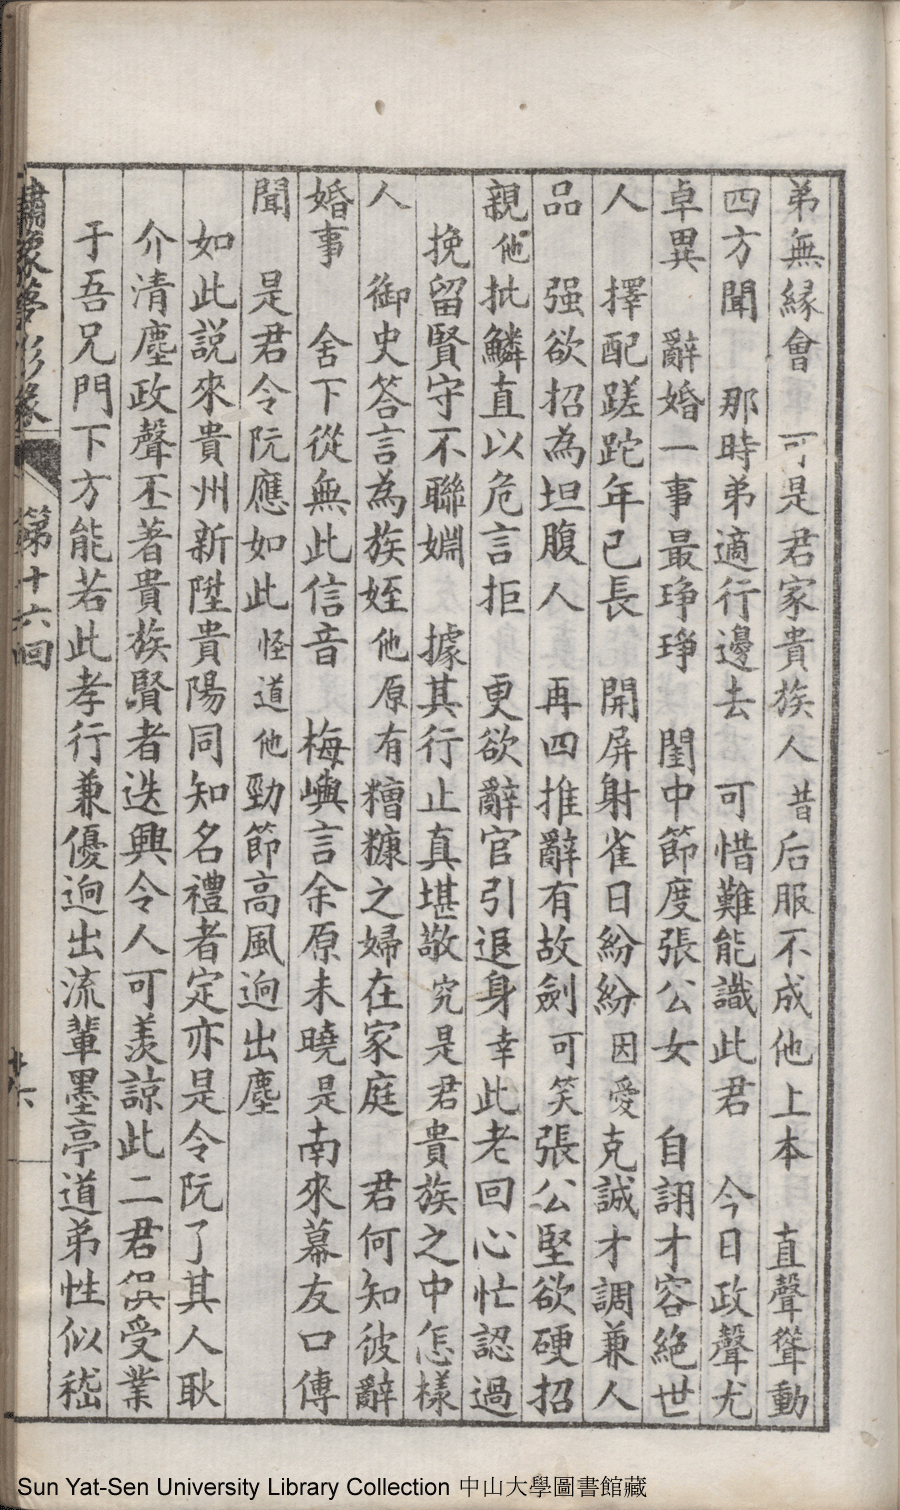 弟無緣會　可是君家貴族人昔后服不成他上本　直聲聳動
四方聞　那時弟適行邊去　可惜難能識此君　今日政聲尤
卓異　辭婚一事最琤琤　閨中節度張公女　自詡才容絕世
人　擇配蹉跎年已長　開屏射雀日紛紛因愛克誠才調兼人
品　强欲招為坦腹人　再四推辭有故劍可笑張公堅欲硬招
親他批鱗直以危言拒　更欲辭官引退身幸此老回心忙認過
挽留賢守不聯婣　據其行止真堪敬究是君貴族之中怎樣
人　御史答言為族姪他原有糟糠之婦在家庭　君何知彼辭
婚事　舍下從無此信音　梅嶼言余原未曉是南來幕友口傳
聞　是君令阮應如此怪道他勁節高風迥出塵
如此說來貴州新陞貴陽同知名禮者定亦是令阮了其人耿
介清塵政聲丕著貴族賢者迭興令人可羨諒此二君俱受業
于吾兄門下方能若此孝行兼優迥出流輩墨亭道弟性似嵇
繡像夢影緣　第十六回　廿六
Sun Yat-Sen University Library Collection 中山大學圖書館藏